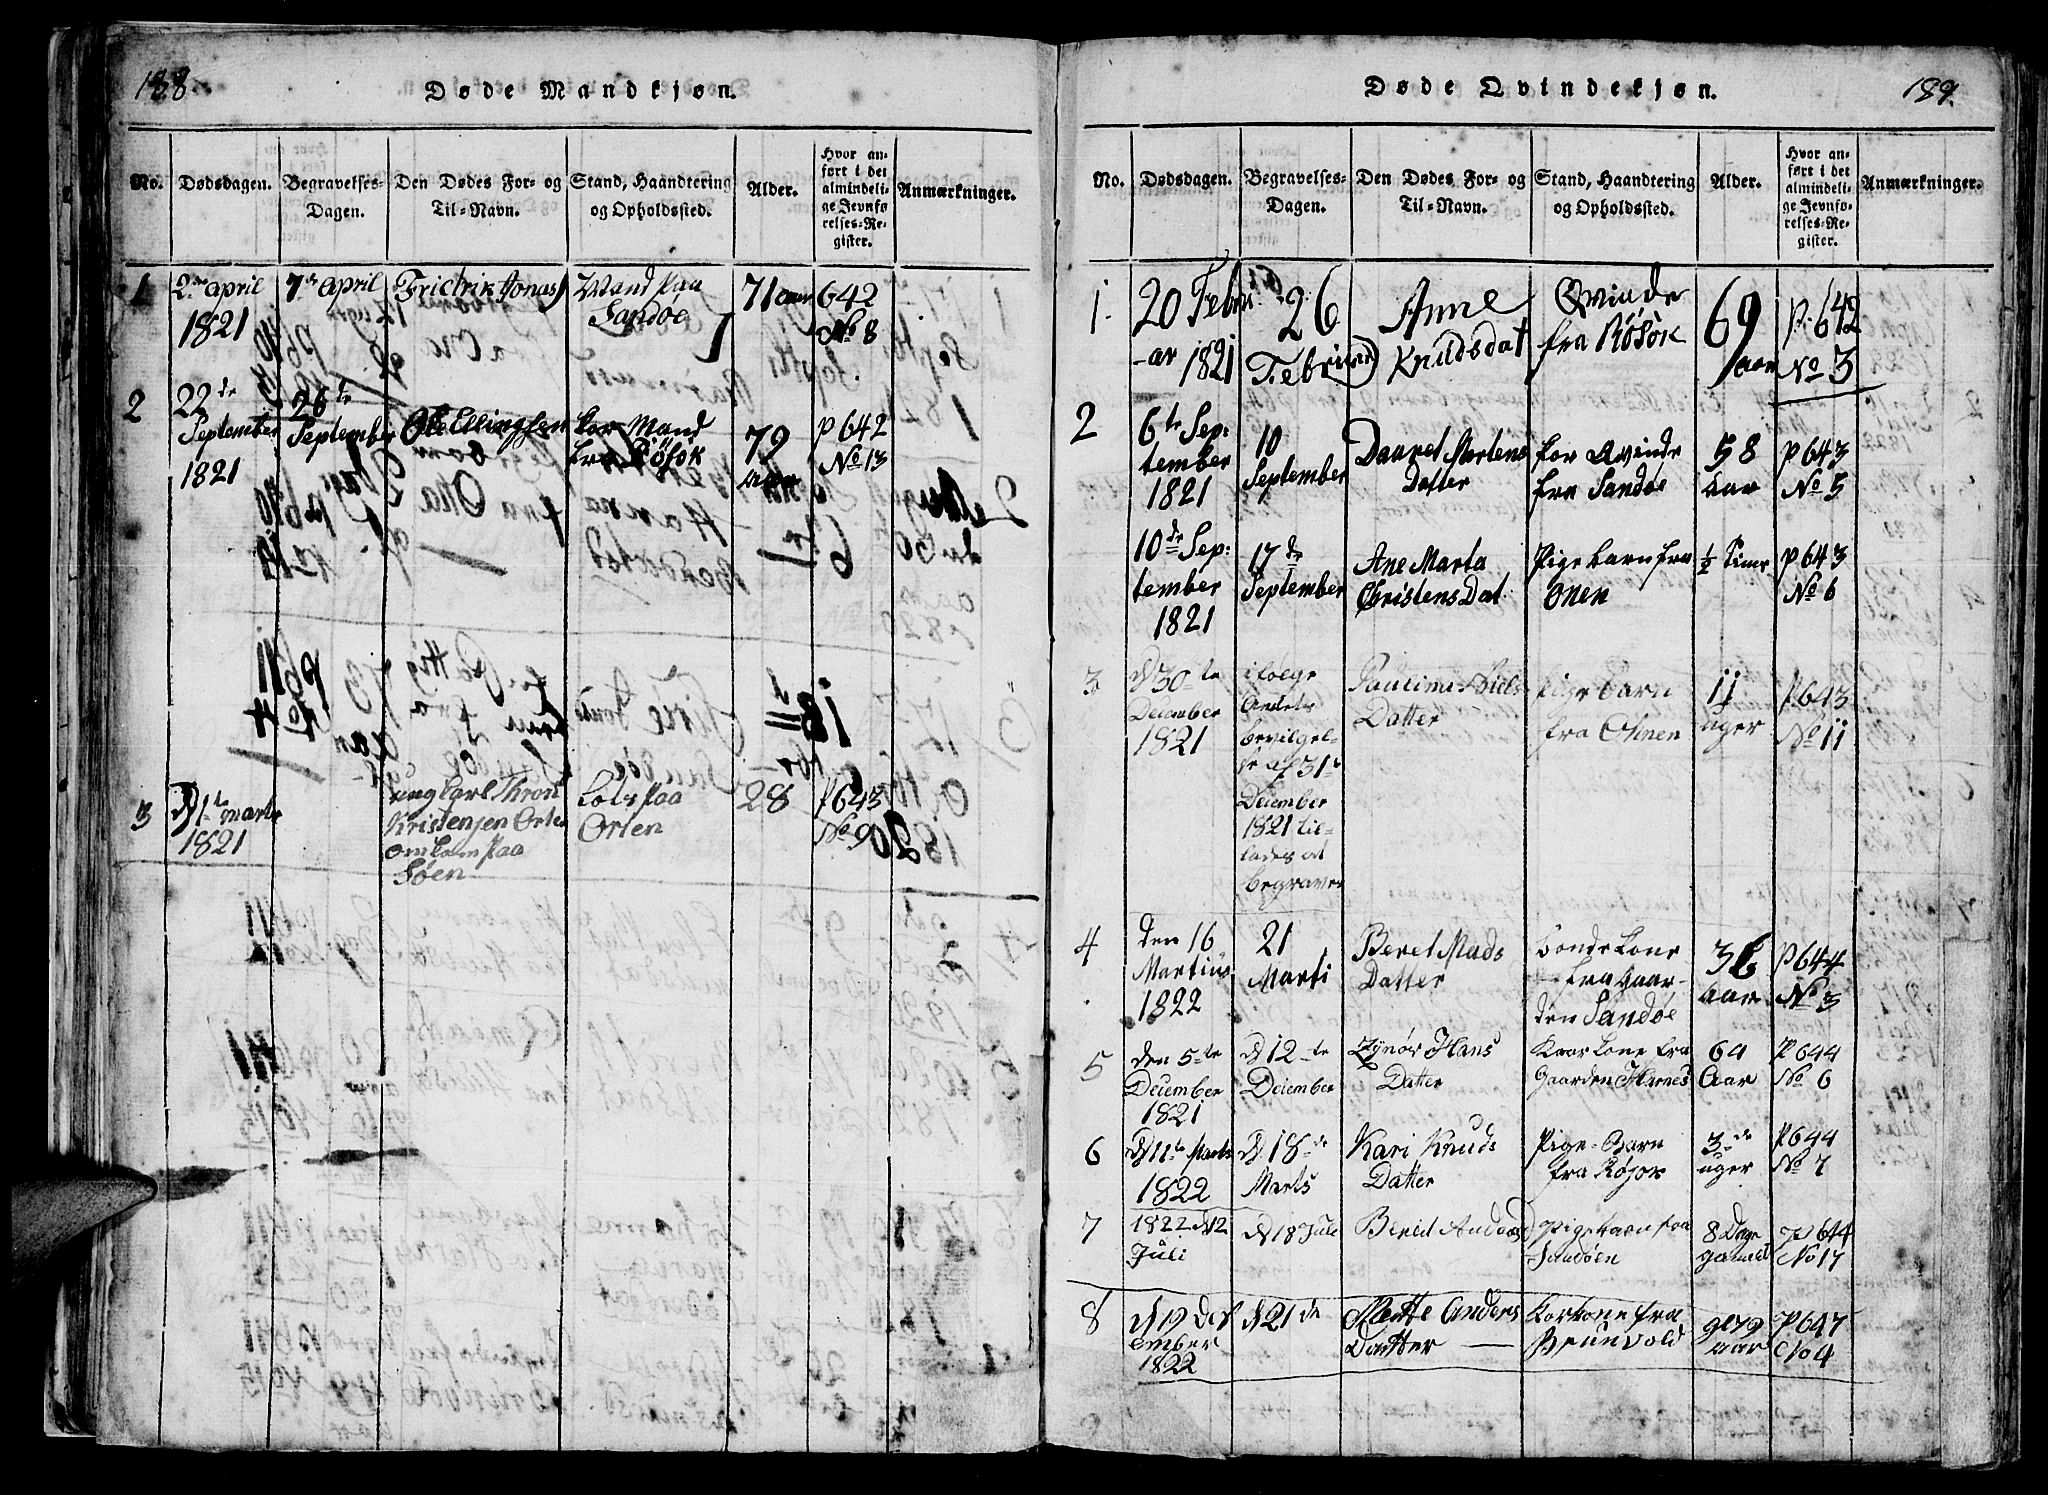 188
Døde Mandkjøn.
No.
Dødsdagen.
Begravelses-
Dagen.
Den Dødes For- og
Til-Navn.
Stand, Haandtering
og Opholdssted.
Alder.
Hvor an-
ført i det
almindeli-
ge Jevnfø-
relses-Re-
gister.
Anmærkninger.
1
2den april
1821
7de April
Fridrik Jonas
Mand paa
Sandøe
71 aar
642
No 8
2
22de
September
1821
26de
September
Ole Ellingsen
kor Mand
fra Røsok
79
aar
p 642
No 13
3
D 1te marts
1821
ung Carl Thron
Kristensen Orten
omkom paa
Søen
Lots paa
Orten
28
P 643
No 9
189.
Døde Qvindekjøn.
No.
Dødsdagen.
Begravelses-
Dagen.
Den Dødes For- og
Til-Navn.
Stand, Haandtering
og Opholdssted.
Alder.
Hvor an-
ført i det
almindeli-
ge Jevnfø-
relses-Re-
gister.
Anmærkninger.
1.
20 Febru
-ar 1821
26
Februar
Anne
Knudsdat
Qvinde
fra Røsok
69
aar
p. 642
No 3
2
6te Sep:
tember
1821
10
September
Daaret Mortens
Datter
kor Qvinde
fra Sandøe
58
aar
p 643
No 5
10de Sep:
tember
1821
17de
September
Ane Marta
Christens Dat.
Pige barn fra
Onen
1/2 Time
p 643
No 6
3
D 30te
December
1821
ifølge
Andets
bevilgel-
se af 31te
December
1821 til-
lades at
begraves
Paulina Niels
Datter
Pige barn
fra Onen
11
uger
P. 643
No 11
4
den 16
Martius
1822
21
Marti
Beret Mads
Datter
bonde kone
fra gaar-
den Sandøe
36
aar
P 644
No 3
5
den 5te
December
1821
D 12te
Deiember
Synør Hans
Datter
Kaar kone fra
Gaarden Harnes
64
Aar
P 644
No 6
6
D 11te Marts
1822
D. 18de
Marts
Kari Knuds
Datter
Pige-Barn
fra Røsok
3de
uger
P 644
No 7
7
1822 d 12
Juli
D 18 Juli
Bereit Anders
Pigebarn fra
Sandøen
8 Dage
gamel
P 644
No 17
8
D 19 Des
ember
1822
D 21de
Mætte Anders
Datter
Korkone fra
Brunvold
gl 79
aar
P 647
No 4